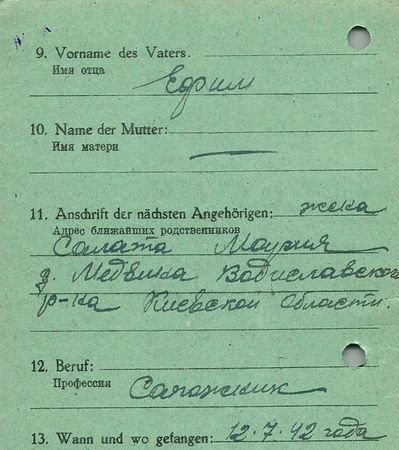 9. Vorname des Vaters.
Имя отца
Ефим
10. Name der Mutter:
Имя матери
11. Anschrift der nächsten Angehörigen: жена
Адрес ближайших родственников
Салата Мария
д. Медвика Водиславского
р-на Киевской Области.
12. Beruf:
Профессия
Сапожник
13. Wann und wo gefangen: 12.7.42 года